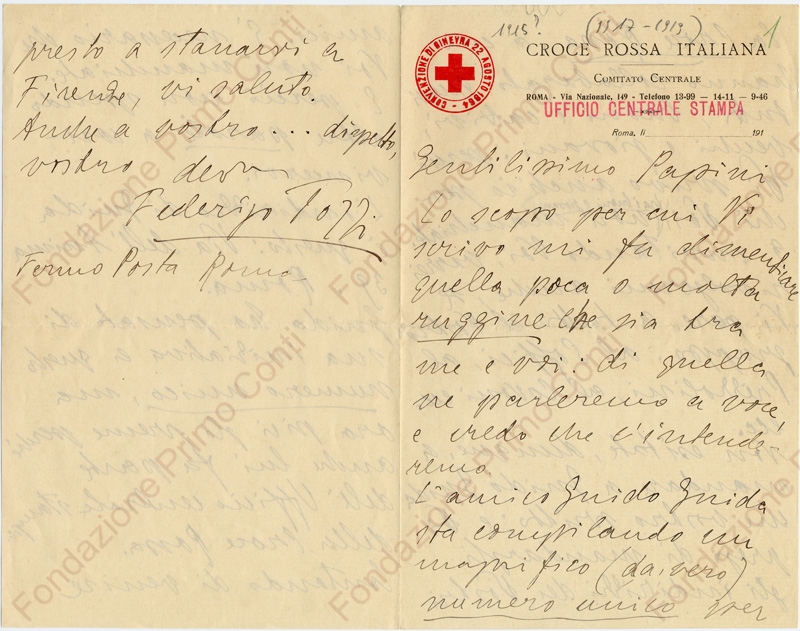 presto a stanarvi a
Firenze, vi saluto.
Anche a vostro ... dispetto,
vostro dev
Federigo Tozzi
Fermo Posta Roma
1915? (1917-1919) 1
CONVENZIONE DI GINEVRA 22 AGOSTO 1864
CROCE ROSSA ITALIANA
COMITATO CENTRALE
ROMA - Via Nazionale, 149 - Telefono 13-99 — 14-11 — 9-46
UFFICIO CENTRALE STAMPA
Roma, li 191
Gentilissimo Papini
Lo scopo per cui Vi
scrivo mi fa dimenticare
quella poca o molta
ruggine che sia tra
me e voi: di quella
ne parleremo a voce
e credo che c'intende-
remo.
L'amico Guido Guida
sta compilando un
magnifico (davvero)
numero unico per
Fondazione Primo Conti